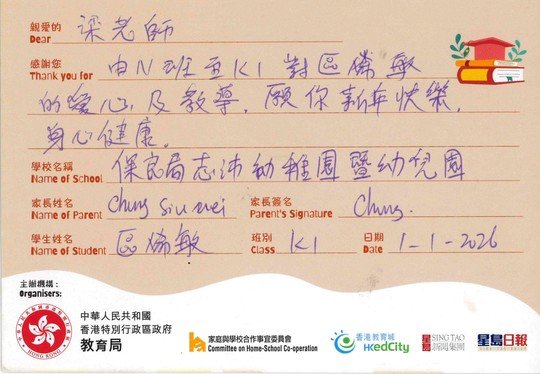 親愛的 梁老師
Dear
感謝您 由N班至K1對區僑敏
Thank you for
的愛心及教導,願你新年快樂,
身心健康。
學校名稱 保良局志沛幼稚園暨幼兒園
Name of School
家長姓名 Chung Siu mei 家長簽名 Chung.
Name of Parent Parent's Signature
學生姓名 區僑敏 班別 K1 日期 1-1-2026
Name of Student Class Date
主辦機構:
Organisers:
中華人民共和國
香港特別行政區政府
教育局
HONG KONG
家庭與學校合作事宜委員會
Committee on Home-School Co-operation
香港教育城
HKedCity
星島 SING TAO
新聞集團
星島日報